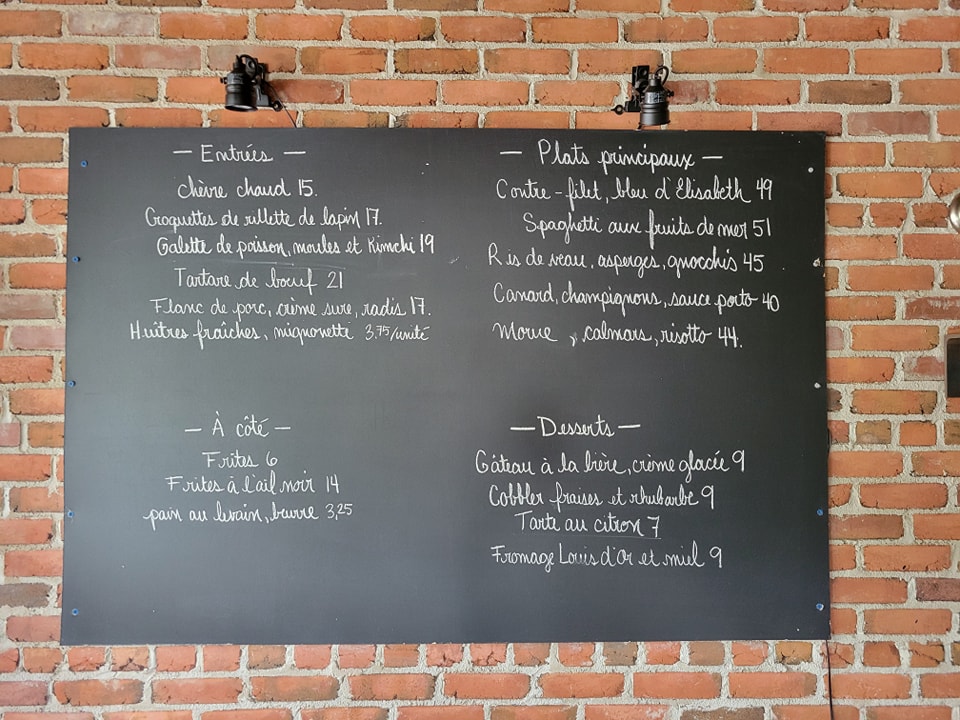 — Entrées —
chèvre chaud 15.
Croquettes de rillette de lapin 17.
Galette de poisson, moules et Kimchi 19
Tartare de boeuf 21
Flanc de porc, crème sure, radis 17.
Huîtres fraîches, mignonette 3.75/unité
— À côté —
Frites 6
Frites à l'ail noir 14
pain au levain, beurre 3,25
— Plats principaux —
Contre-filet, bleu d'Élisabeth 49
Spaghetti aux fruits de mer 51
Ris de veau, asperges, gnocchis 45
Canard, champignons, sauce porto 40
Morue, calmars, risotto 44.
— Desserts —
Gâteau à la bière, crème glacée 9
Cobbler fraises et rhubarbe 9
Tarte au citron 7
Fromage Louis d'Or et miel 9